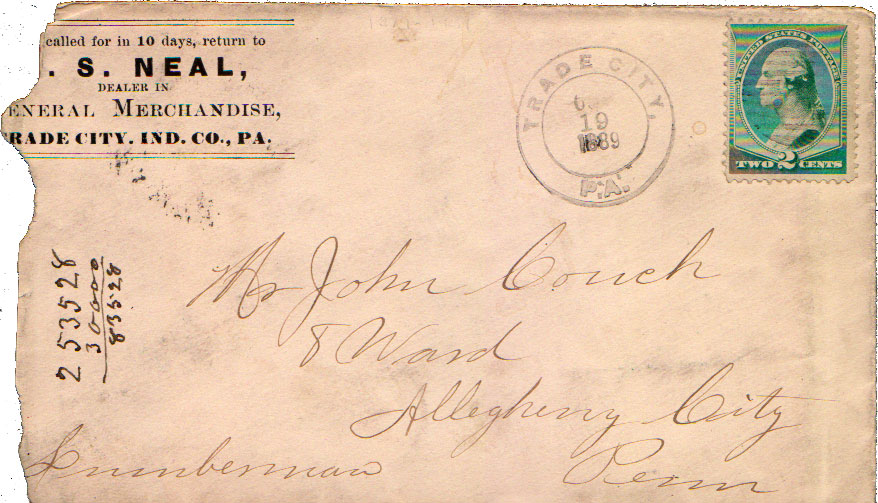 called for in 10 days, return to
. S. NEAL,
DEALER IN
ENERAL MERCHANDISE,
RADE CITY. IND. CO., PA.
TRADE CITY,
19
1889
PA.
UNITED STATES POSTAGE
TWO 2 CENTS
253528
30000
83528
Mr John Couch
8 Ward
Allegheny City
Lumberman Penn